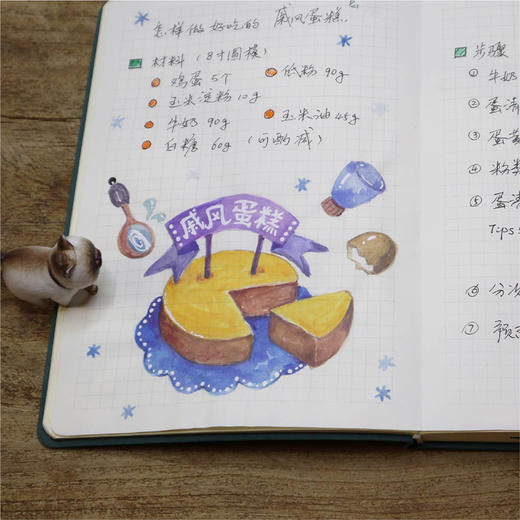 怎样做好吃的 戚风蛋糕
材料 (8寸圆模)
鸡蛋 5个 低粉 90g
玉米淀粉 10g
牛奶 90g 玉米油 45g
白糖 60g (可酌减)
戚风蛋糕
步骤
① 牛奶
② 蛋清
③ 蛋黄
④ 粉类
⑤ 蛋清
Tips
⑥ 分次
⑦ 预